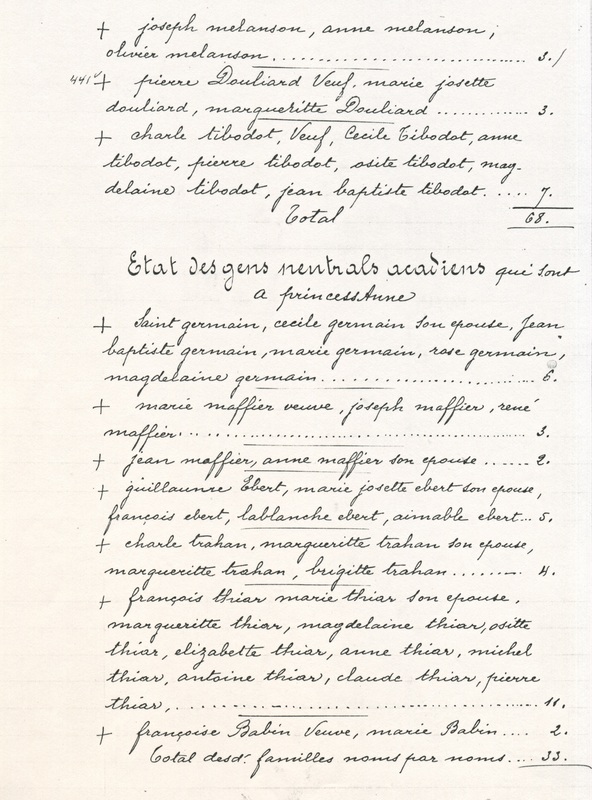 + joseph melanson, anne melanson,
olivier melanson.................................. 3./
441v + pierre Douliard Veuf, marie josette
douliard, margueritte Douliard .............. 3.
+ charle tibodot, Veuf, Cecile Tibodot, anne
tibodot, pierre tibodot, osite tibodot, mag-
delaine tibodot, jean baptiste tibodot. .... 7.
Total 68.
Etat des gens neutrals acadiens qui sont
a princessAnne
+ Saint germain, cecile germain son epouse, Jean
baptiste germain, marie germain, rose germain,
magdelaine germain......................... 6.
+ marie maffier veuve, joseph maffier, rené
maffier......................................... 3.
+ jean maffier, anne maffier son epouse ...... 2.
+ guillaumne Ebert, marie josette ebert son epouse,
françois ebert, lablanche ebert, aimable ebert... 5.
+ charle trahan, margueritte trahan son epouse,
margueritte trahan, brigitte trahan......... 4.
+ françois thiar marie thiar son epouse,
margueritte thiar, magdelaine thiar, ositte
thiar, elizabette thiar, anne thiar, michel
thiar, antoine thiar, claude thiar, pierre
thiar,......................................... 11.
+ françoise Babin Veuve, marie Babin.... 2.
Total desdt. familles noms par noms.... 33.